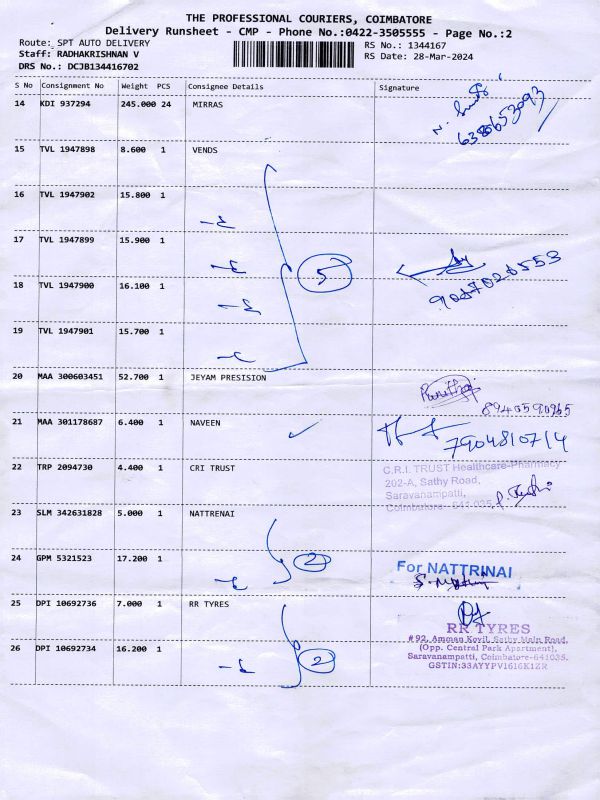 THE PROFESSIONAL COURIERS, COIMBATORE
Delivery Runsheet - CMP - Phone No.:0422-3505555 - Page No.:2
Route: SPT AUTO DELIVERY
RS No.: 1344167
Staff: RADHAKRISHNAN V
RS Date: 28-Mar-2024
DRS No.: DCJB134416702
S No Consignment No Weight PCS Consignee Details Signature
14 KDI 937294 245.000 24 MIRRAS
6380653093
15 TVL 1947898 8.600 1 VENDS
16 TVL 1947902 15.800 1
17 TVL 1947899 15.900 1
5
18 TVL 1947900 16.100 1
19 TVL 1947901 15.700 1
20 MAA 300603451 52.700 1 JEYAM PRESISION
8940590965
21 MAA 301178687 6.400 1 NAVEEN
7904810714
22 TRP 2094730 4.400 1 CRI TRUST
C.R.I. TRUST Healthcare-Pharmacy
202-A, Sathy Road,
Saravanampatti,
Coimbatore- 641 035
23 SLM 342631828 5.000 1 NATTRENAI
24 GPM 5321523 17.200 1
2
For NATTRINAI
25 DPI 10692736 7.000 1 RR TYRES
RR TYRES
# 92, Amman Kovil, Sathy Main Road,
(Opp. Central Park Apartment),
Saravanampatti, Coimbatore-641035.
GSTIN:33AYYPV1616K1ZR
26 DPI 10692734 16.200 1
2